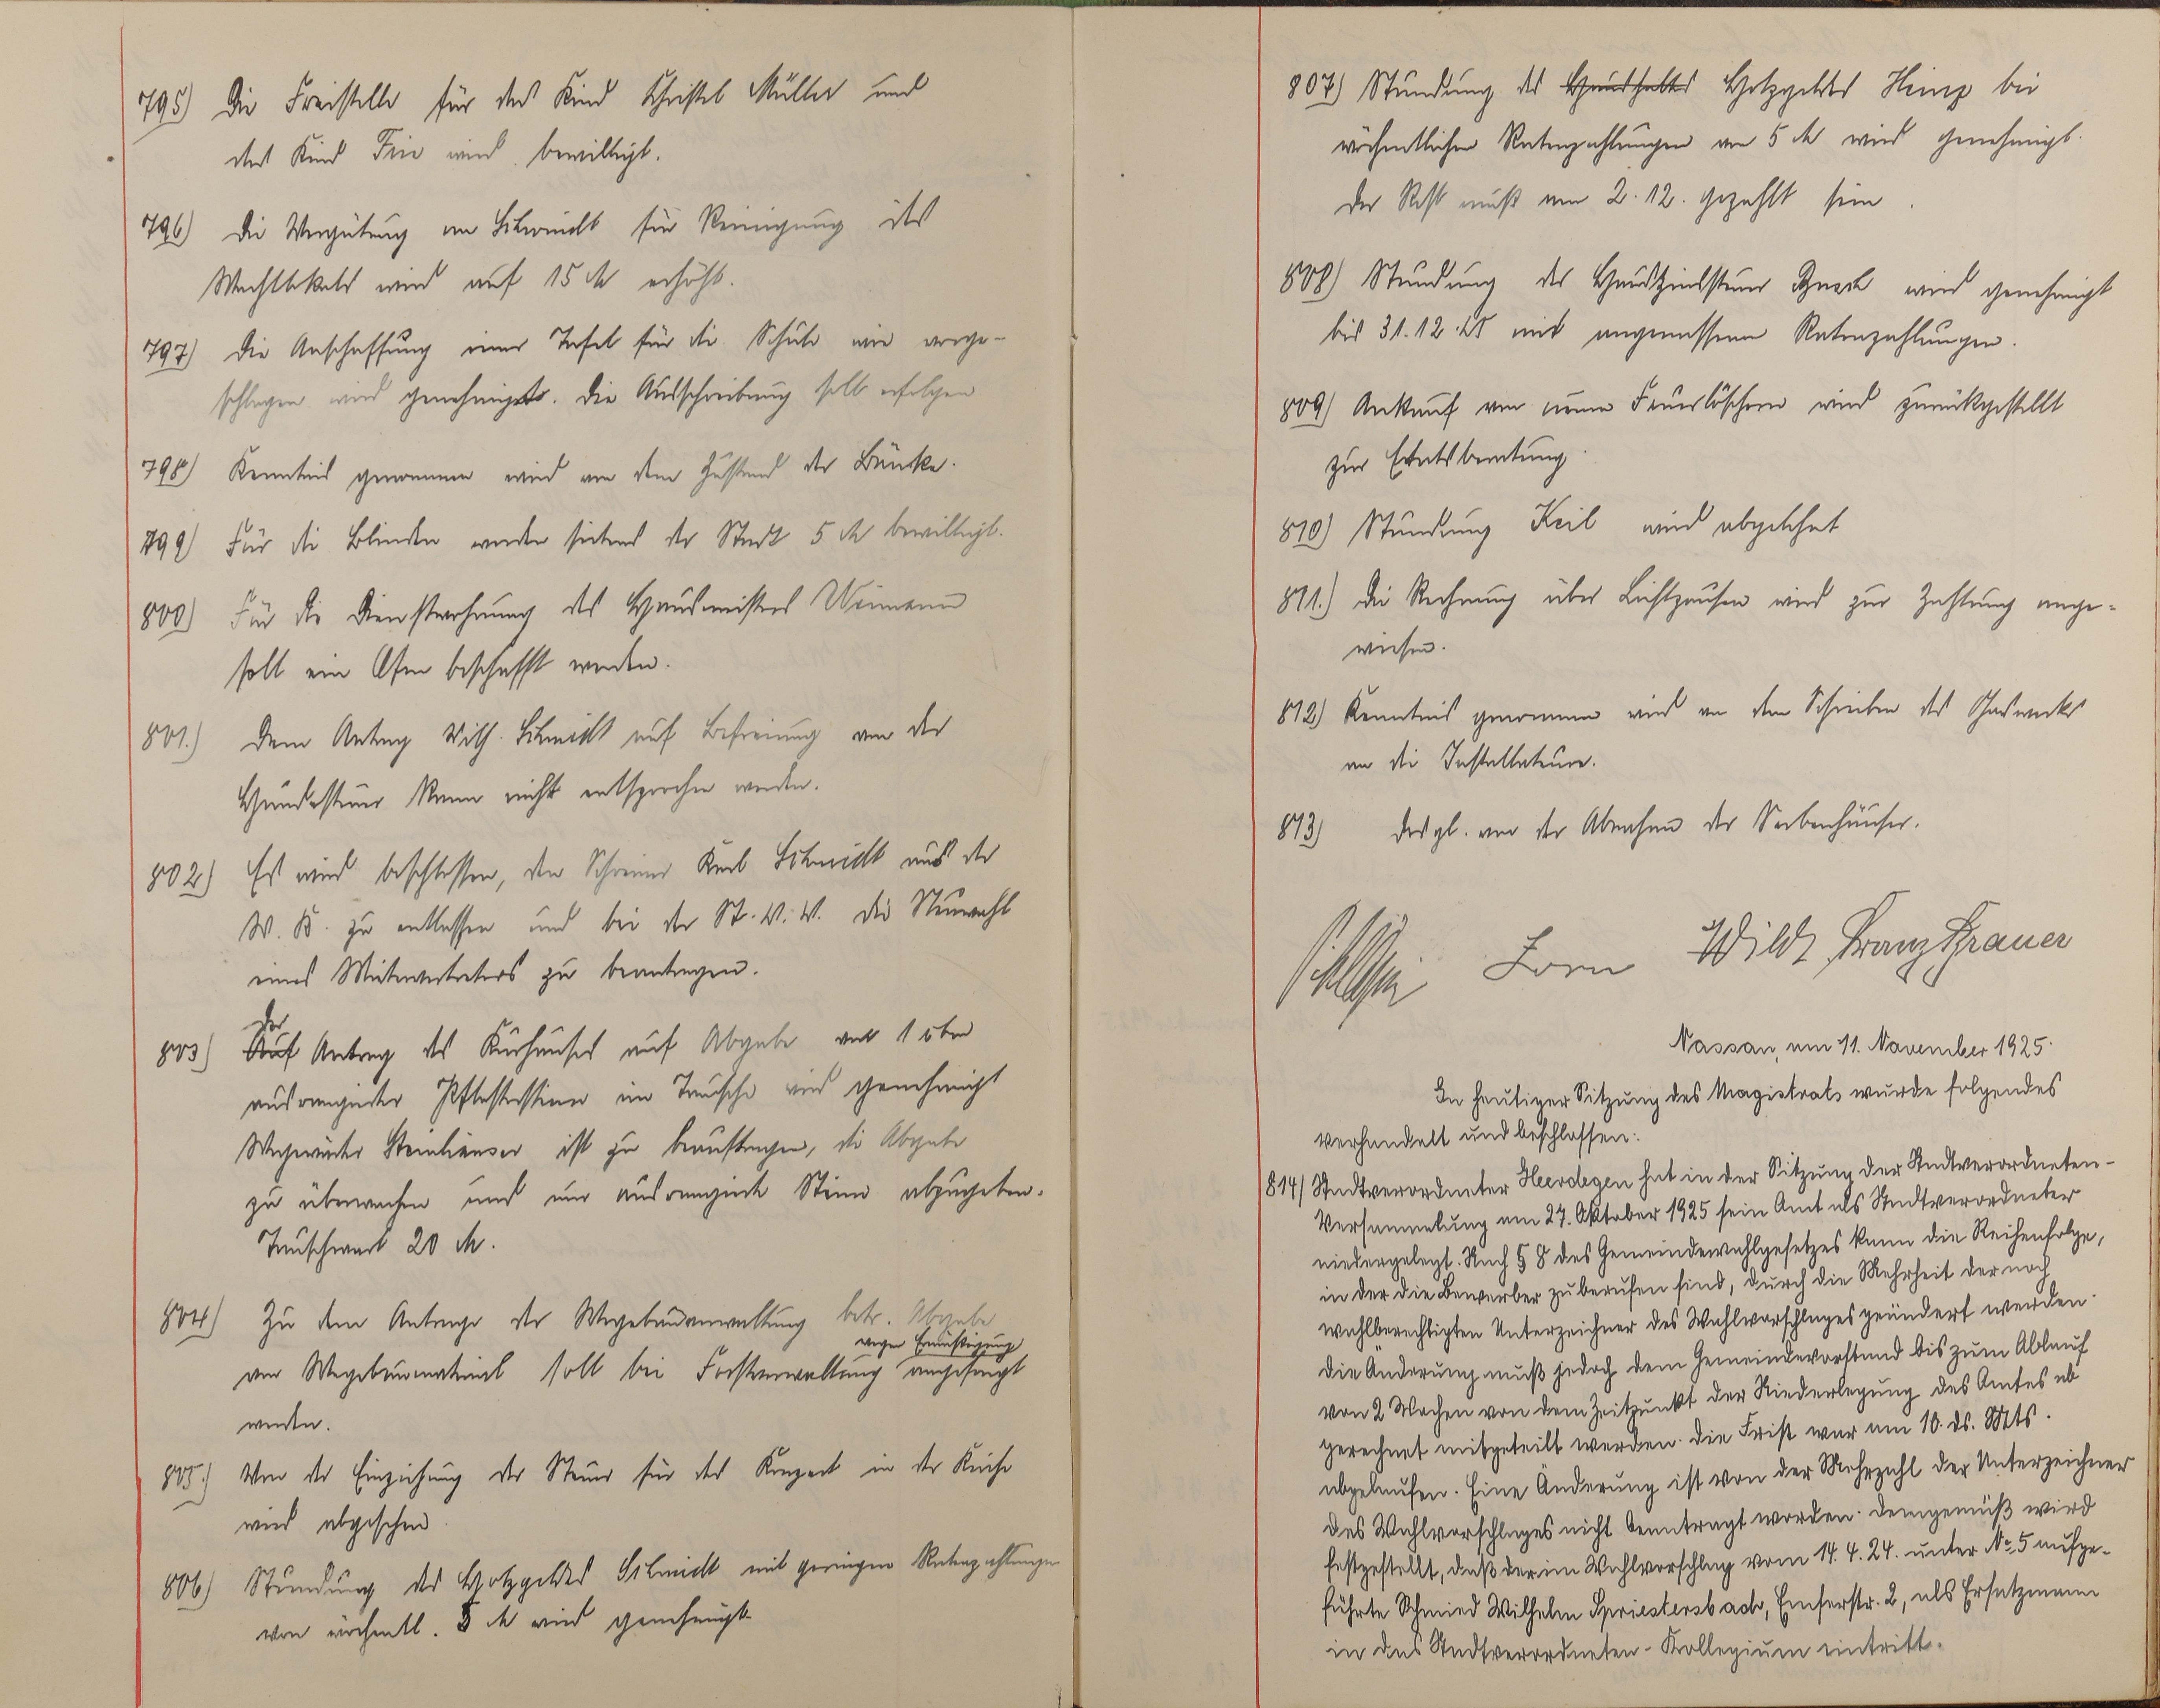 795) Die Freistelle für das Kind Christel Müller und
das Kind wird bewilligt.
796) Die Vergütung an Schmidt für Reinigung des
Wachtlokals wird auf 15 M erhöht.
797) Die Anschaffung einer Tafel für die Schule wie vorge-
schlagen wird genehmigt. Die Ausschreibung soll erfolgen
798) Kenntnis genommen wird von dem Zustand der Bänke.
799) Für die Blinden werden seitens der Stadt 5 M bewilligt.
800) Für die Dienstwohnung des Hausmeisters Weimann
soll ein Ofen beschafft werden.
801.) Dem Antrag Wilh. Schmidt auf Befreiung von der
Hundesteuer kann nicht entsprochen werden.
802) Es wird beschlossen, den Schreiner Karl Schmidt aus der
W. K. zu entlassen und bei der St. V. V. die Neuwahl
eines Mietervertreters zu beantragen.
Der
803) Auf Antrag des Kurhauses auf Abgabe von 1 cbm
ausrangierter Pflastersteine im Tausche wird genehmigt
Wegewärter Steinhäuser ist zu beauftragen, die Abgabe
zu überwachen und nur ausrangierte Steine abzugeben.
Tauschwert 20 M.
804) Zu dem Antrage der Wegebauverwaltung betr. Abgabe
wegen Ermäßigung
von Wegebaumaterial soll bei Forstverwaltung angefragt
werden.
805.) Von der Einziehung der Steuer für das Konzert in der Kirche
wird abgesehen.
806) Stundung des Holzgeldes Schmidt mit geringen Ratenzahlungen
von wöchentl. 5 M wird genehmigt
807) Stundung des Haushaltes Holzgeldes Heinz bei
wöchentlichen Ratenzahlungen von 5 M wird genehmigt.
Der Rest muß am 2.12. gezahlt sein.
808) Stundung der Hauszinssteuer wird genehmigt
bis 31.12.25 mit angemessenen Ratenzahlungen.
809) Ankauf von neuen Feuerlöschern wird zurückgestellt
zur Etatsberatung.
810) Stundung Keil wird abgelehnt
811.) Die Rechnung über Lichtpausen wird zur Zahlung ange-
wiesen.
812) Kenntnis genommen wird von dem Schreiben des Gaswerks
an die Installateure.
813) desgl. von der Abnahme der Siebenhäuser.
Zorn Wildt Franz Grauer
Nassau, am 11. November 1925.
In heutiger Sitzung des Magistrats wurde folgendes
verhandelt und beschlossen:
814) Stadtverordneter Heerdegen hat in der Sitzung der Stadtverordneten-
Versammlung am 27. Oktober 1925 sein Amt als Stadtverordneter
niedergelegt. Nach § 8 des Gemeindewahlgesetzes kann die Reihenfolge,
in der die Bewerber zu berufen sind, durch die Mehrheit der noch
wahlberechtigten Unterzeichner des Wahlvorschlages geändert werden.
Die Änderung muß jedoch dem Gemeindevorstand bis zum Ablauf
von 2 Wochen von dem Zeitpunkt der Niederlegung des Amtes ab
gerechnet mitgeteilt werden. Die Frist war am 10. ds. Mts.
abgelaufen. Eine Änderung ist von der Mehrzahl der Unterzeichner
des Wahlvorschlages nicht beantragt worden. Demgemäß wird
festgestellt, daß der im Wahlvorschlag vom 14.4.24. unter No. 5 aufge-
führte Schmied Wilhelm Spriestersbach, Emserstr. 2, als Ersatzmann
in das Stadtverordneten-Kollegium eintritt.